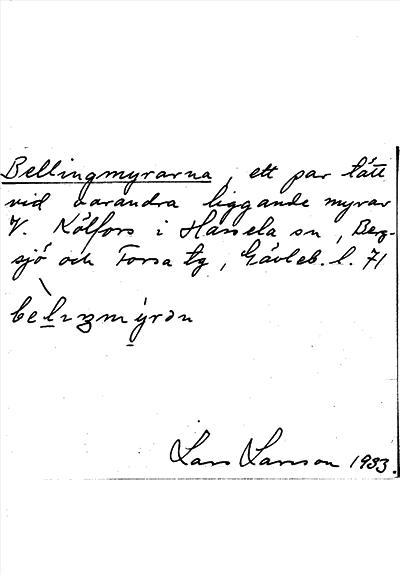 Bellingmyrarna, ett par tätt
vid varandra liggande myrar
V. Kölfors i Hassela sn, Berg-
sjö och Forsa tg, Gävleb. l. 71
Lars Larsson 1933.